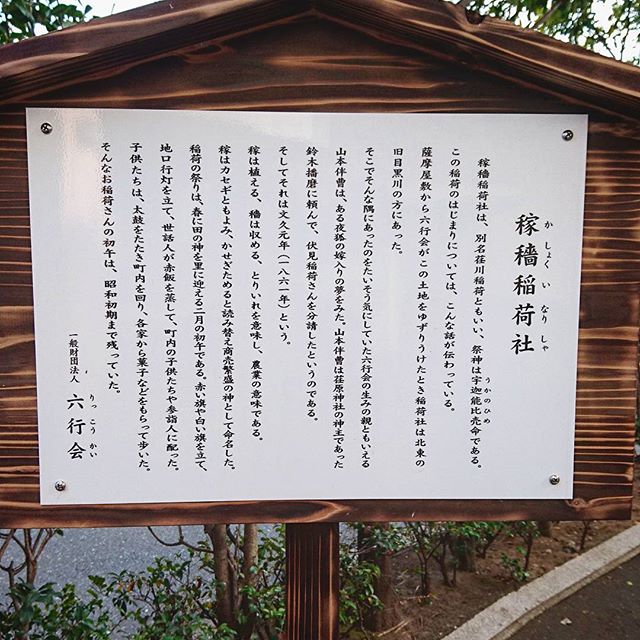 かしょくいなりしゃ
稼穡稲荷社
稼穡稲荷社は、別名荏川稲荷ともいい、祭神は宇迦能比売命である。
うかのひめ
この稲荷のはじまりについては、こんな話が伝わっている。
薩摩屋敷から六行会がこの土地をゆずりうけたとき稲荷社は北東の
旧目黒川の方にあった。
そこでそんな隅にあったのをたいそう気にしていた六行会の生みの親ともいえる
山本伴曹は、ある夜狐の嫁入りの夢をみた。山本伴曹は荏原神社の神主であった
鈴木播磨に頼んで、伏見稲荷さんを分請したというのである。
そしてそれは文久元年(一八六一年)という。
稼は植える、穡は収める、とりいれを意味し、農業の意味である。
稼はカセギともよみ、かせぎためると読み替え商売繁盛の神として命名した。
稲荷の祭りは、春に田の神を里に迎える二月の初午である。赤い旗や白い旗を立て、
地口行灯を立て、世話人が赤飯を蒸して、町内の子供たちや参詣人に配った。
子供たちは、太鼓をたたき町内を回り、各家から菓子などをもらって歩いた。
そんなお稲荷さんの初午は、昭和初期まで残っていた。
一般財団法人 六行会
りっこうかい